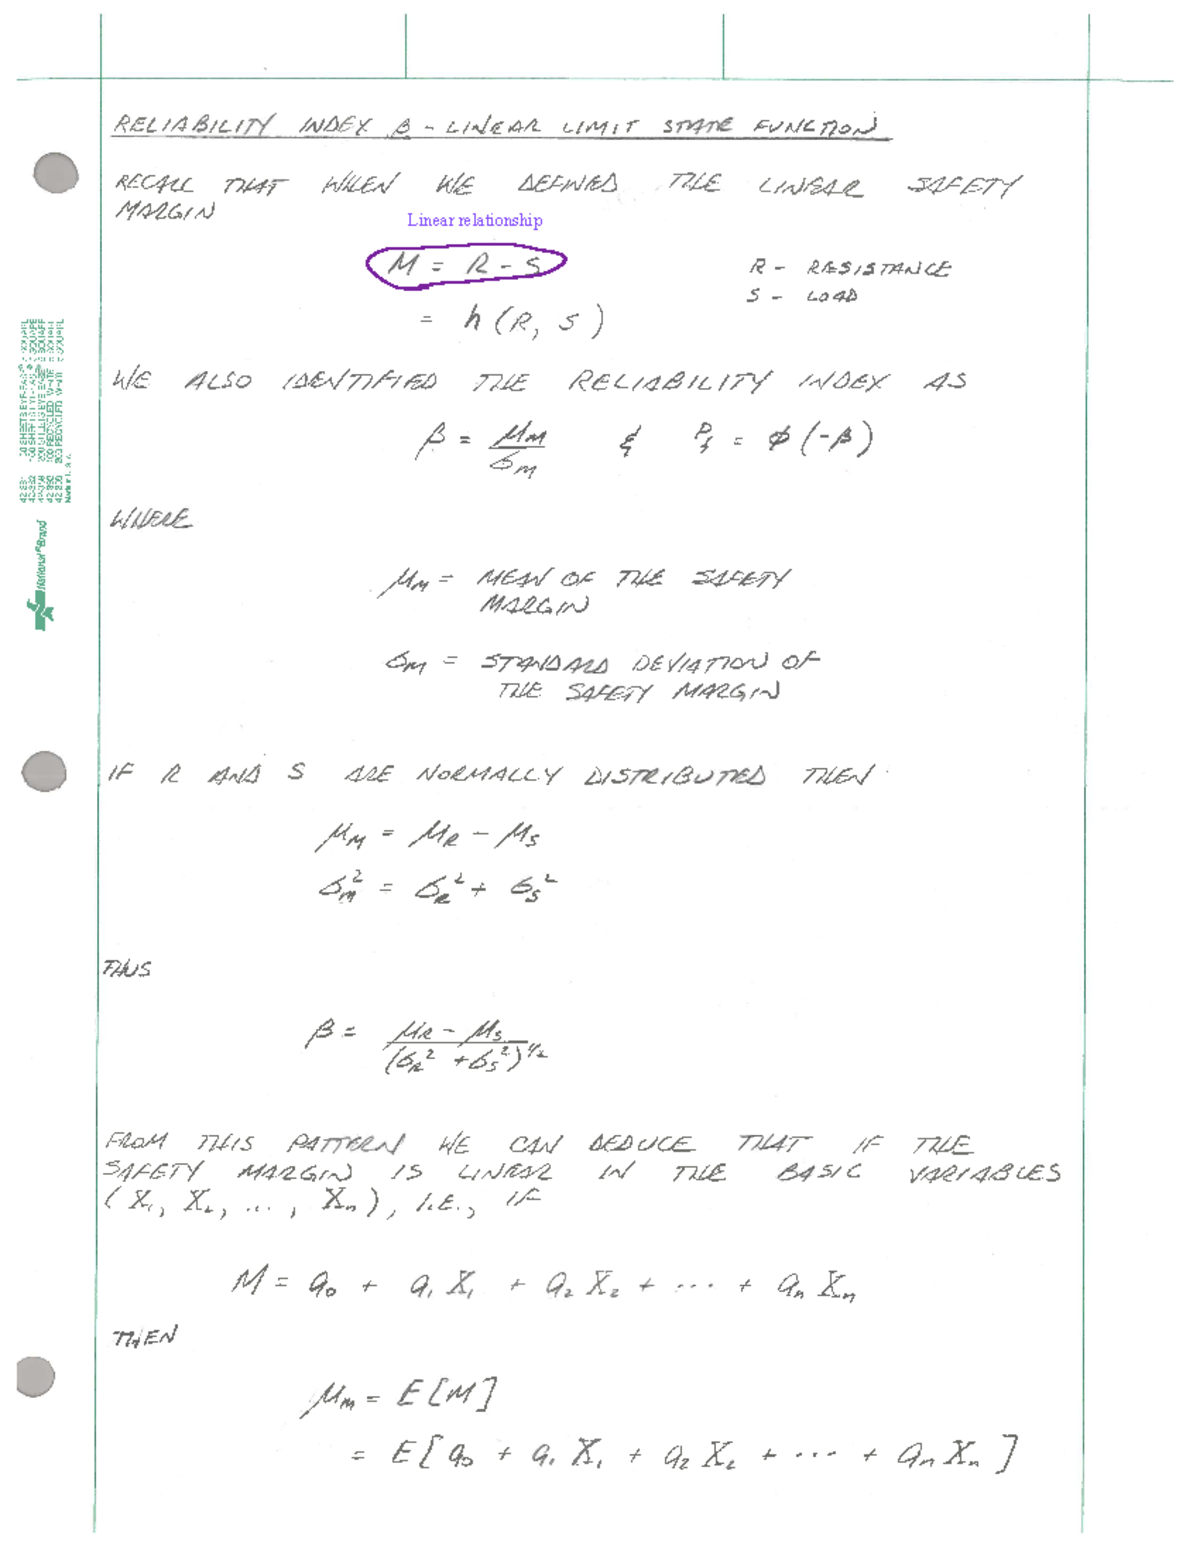 RELIABILITY INDEX β - LINEAR LIMIT STATE FUNCTION
RECALL THAT WHEN WE DEFINED THE LINEAR SAFETY
MARGIN
Linear relationship
M = R - S
R - RESISTANCE
S - LOAD
= h (R, S)
WE ALSO IDENTIFIED THE RELIABILITY INDEX AS
β = μ_M / σ_M & P_f = Φ (-β)
WHERE
μ_M = MEAN OF THE SAFETY
MARGIN
σ_M = STANDARD DEVIATION OF
THE SAFETY MARGIN
IF R AND S ARE NORMALLY DISTRIBUTED THEN
μ_M = μ_R - μ_S
σ_M² = σ_R² + σ_S²
THUS
β = (μ_R - μ_S) / (σ_R² + σ_S²)^1/2
FROM THIS PATTERN WE CAN DEDUCE THAT IF THE
SAFETY MARGIN IS LINEAR IN THE BASIC VARIABLES
(X₁, X₂, ..., Xₙ), I.E., IF
M = a₀ + a₁ X₁ + a₂ X₂ + ... + aₙ Xₙ
THEN
μ_M = E [M]
= E [a₀ + a₁ X₁ + a₂ X₂ + ... + aₙ Xₙ]
National Brand